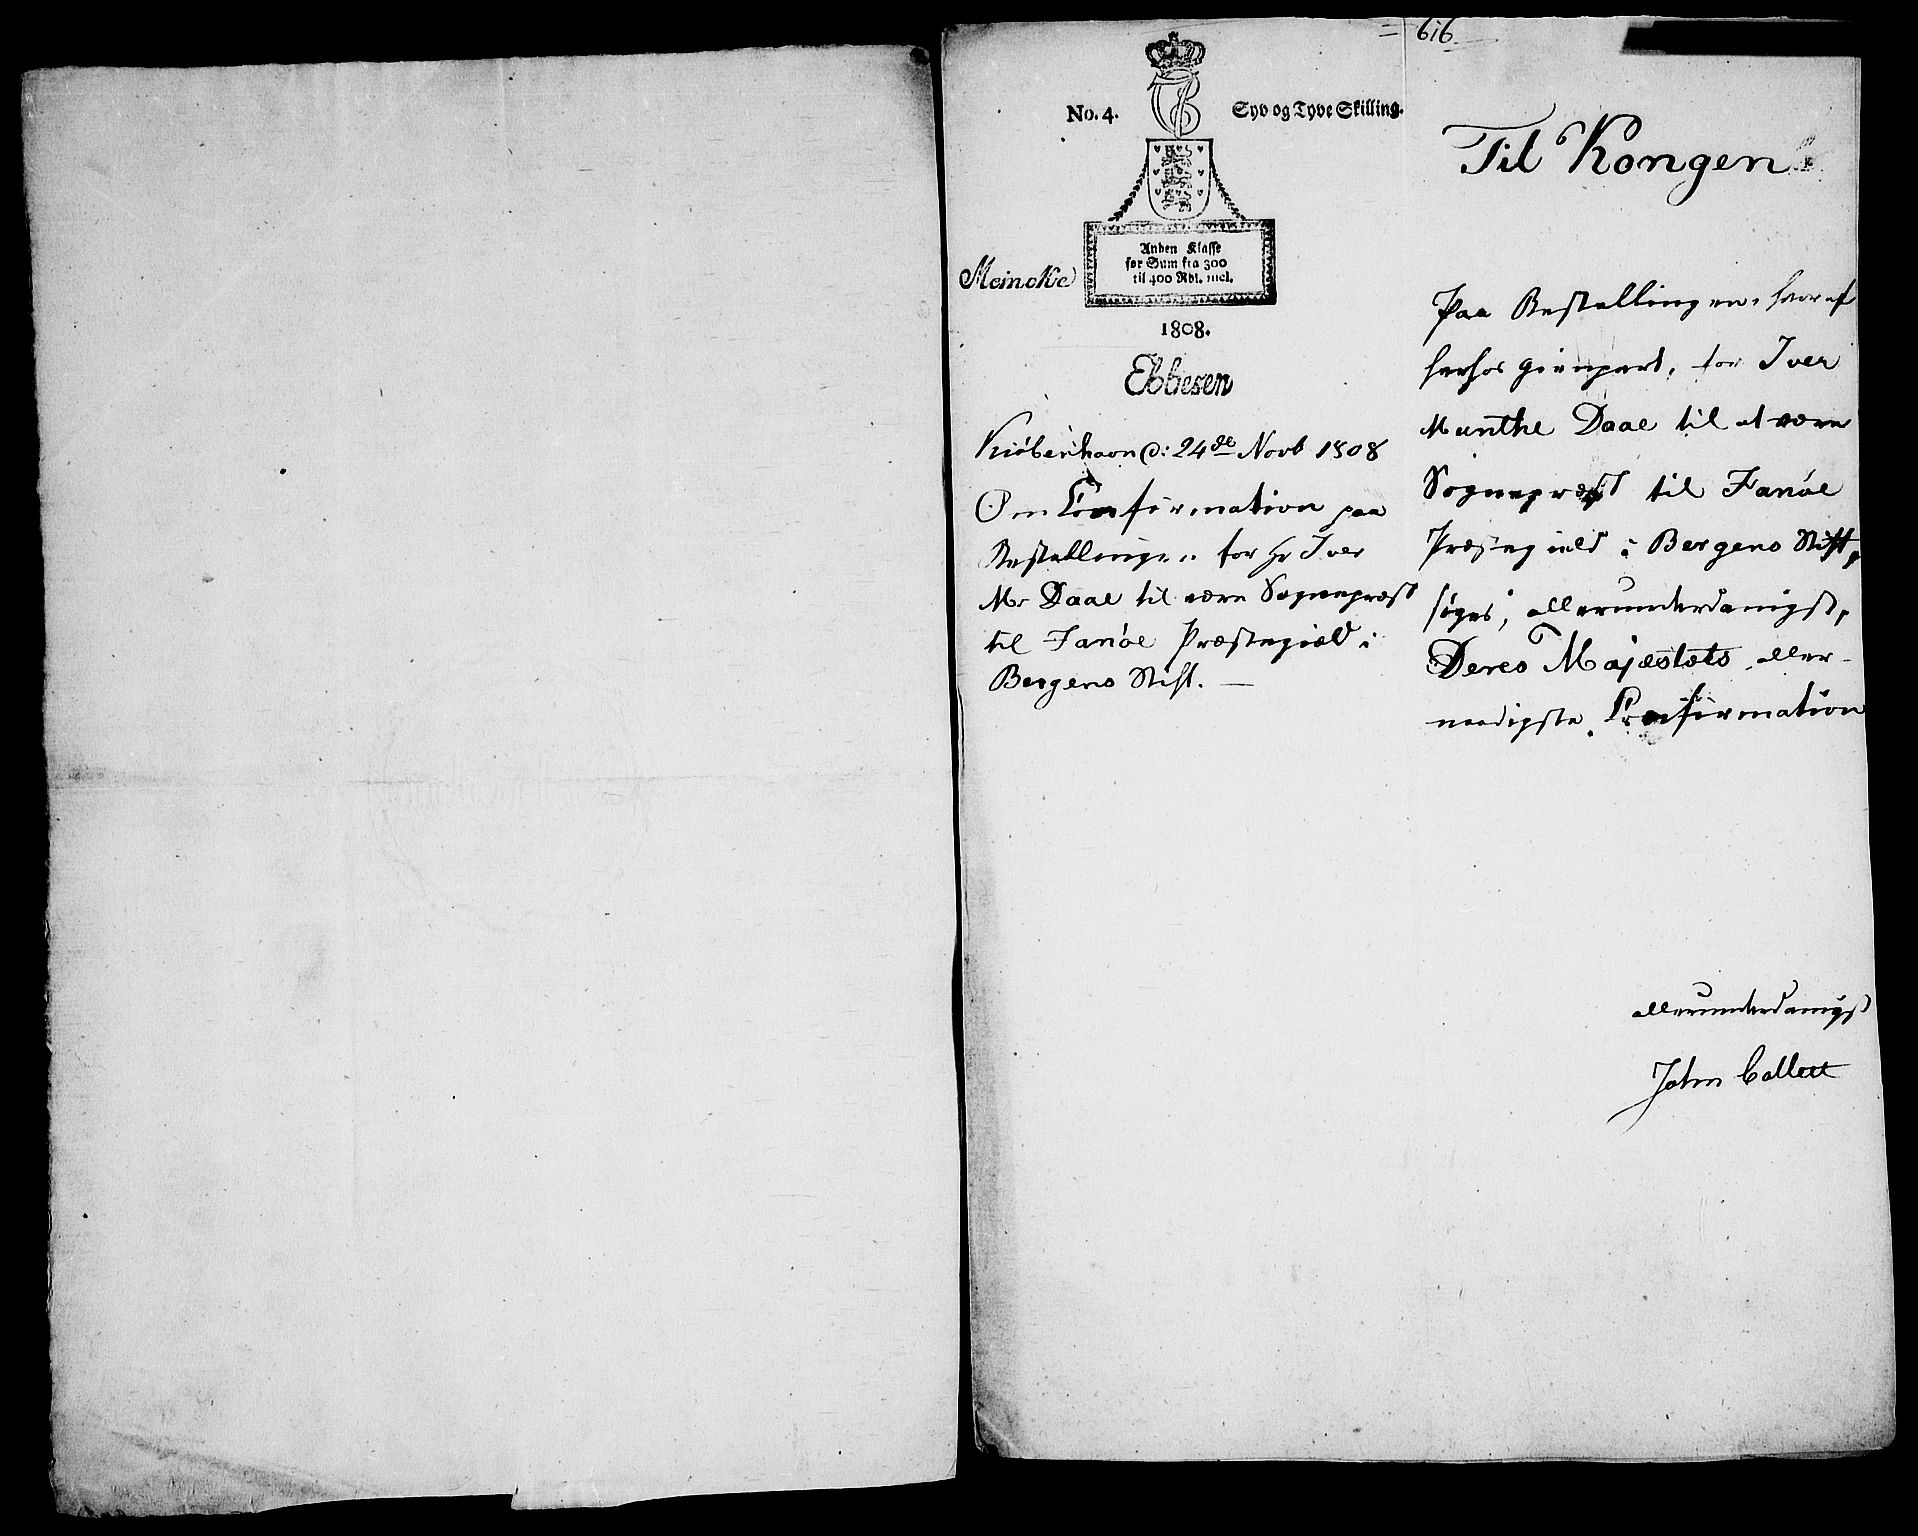 616
No. 4.
Syv og Tyve Skilling.
Anden Klasse
for Sum fra 300
til 400 Rdl. incl.
Meincke
1808.
Ebbesen
Kiöbenhavn d: 24de Novb 1808
Om Confirmation paa
Bestallingen for Hr Iver
M. Daae til være Sognepræst
til Fanöe Præstegield i
Bergens Stift. —
Til Kongen
Paa Bestallingen, hvoraf
herhos Gienpart, for Iver
Munthe Daae til at være
Sognepræst til Fanöe
Præstegield i Bergens Stift,
söges, allerunderdanigst,
Deres Majestæts aller-
naadigste Confirmation
allerunderdanigst
John Collett